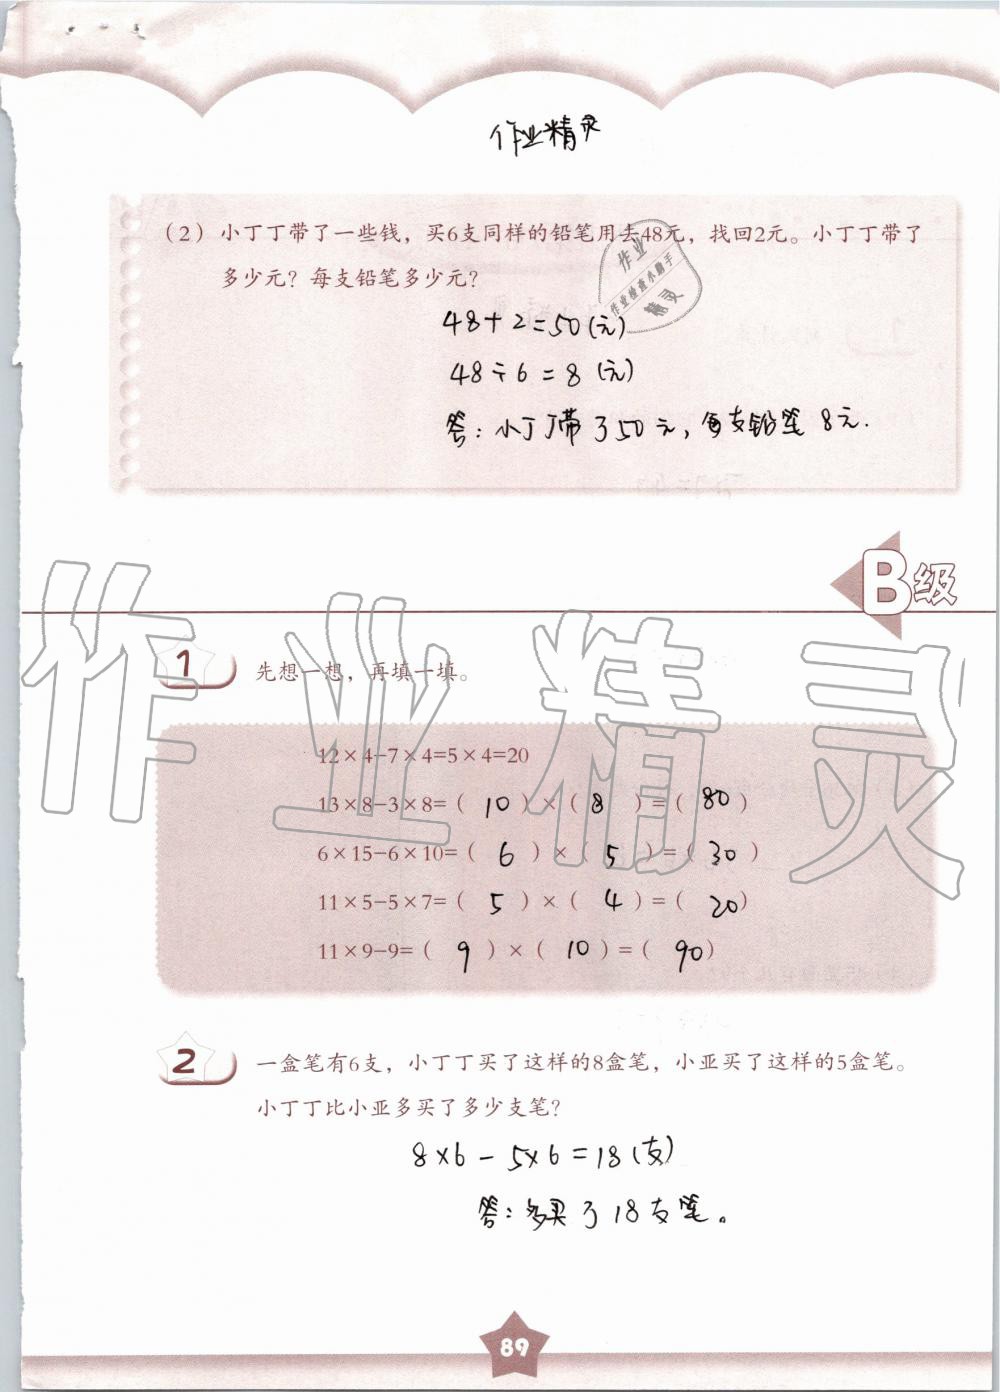 作业精灵
（2）小丁丁带了一些钱，买6支同样的铅笔用去48元，找回2元。小丁丁带了
多少元？每支铅笔多少元？
作业
作业检查小助手
精灵
48+2=50(元)
48÷6=8(元)
答：小丁丁带了50元，每支铅笔8元.
B级
作业精灵
1 先想一想，再填一填。
12×4-7×4=5×4=20
13×8-3×8=（ 10 ）×（ 8 ）=（ 80 ）
6×15-6×10=（ 6 ）×（ 5 ）=（ 30 ）
11×5-5×7=（ 5 ）×（ 4 ）=（ 20）
11×9-9=（ 9 ）×（ 10 ）=（ 90）
2 一盒笔有6支，小丁丁买了这样的8盒笔，小亚买了这样的5盒笔。
小丁丁比小亚多买了多少支笔？
8×6-5×6=18(支)
答：多买了18支笔。
89